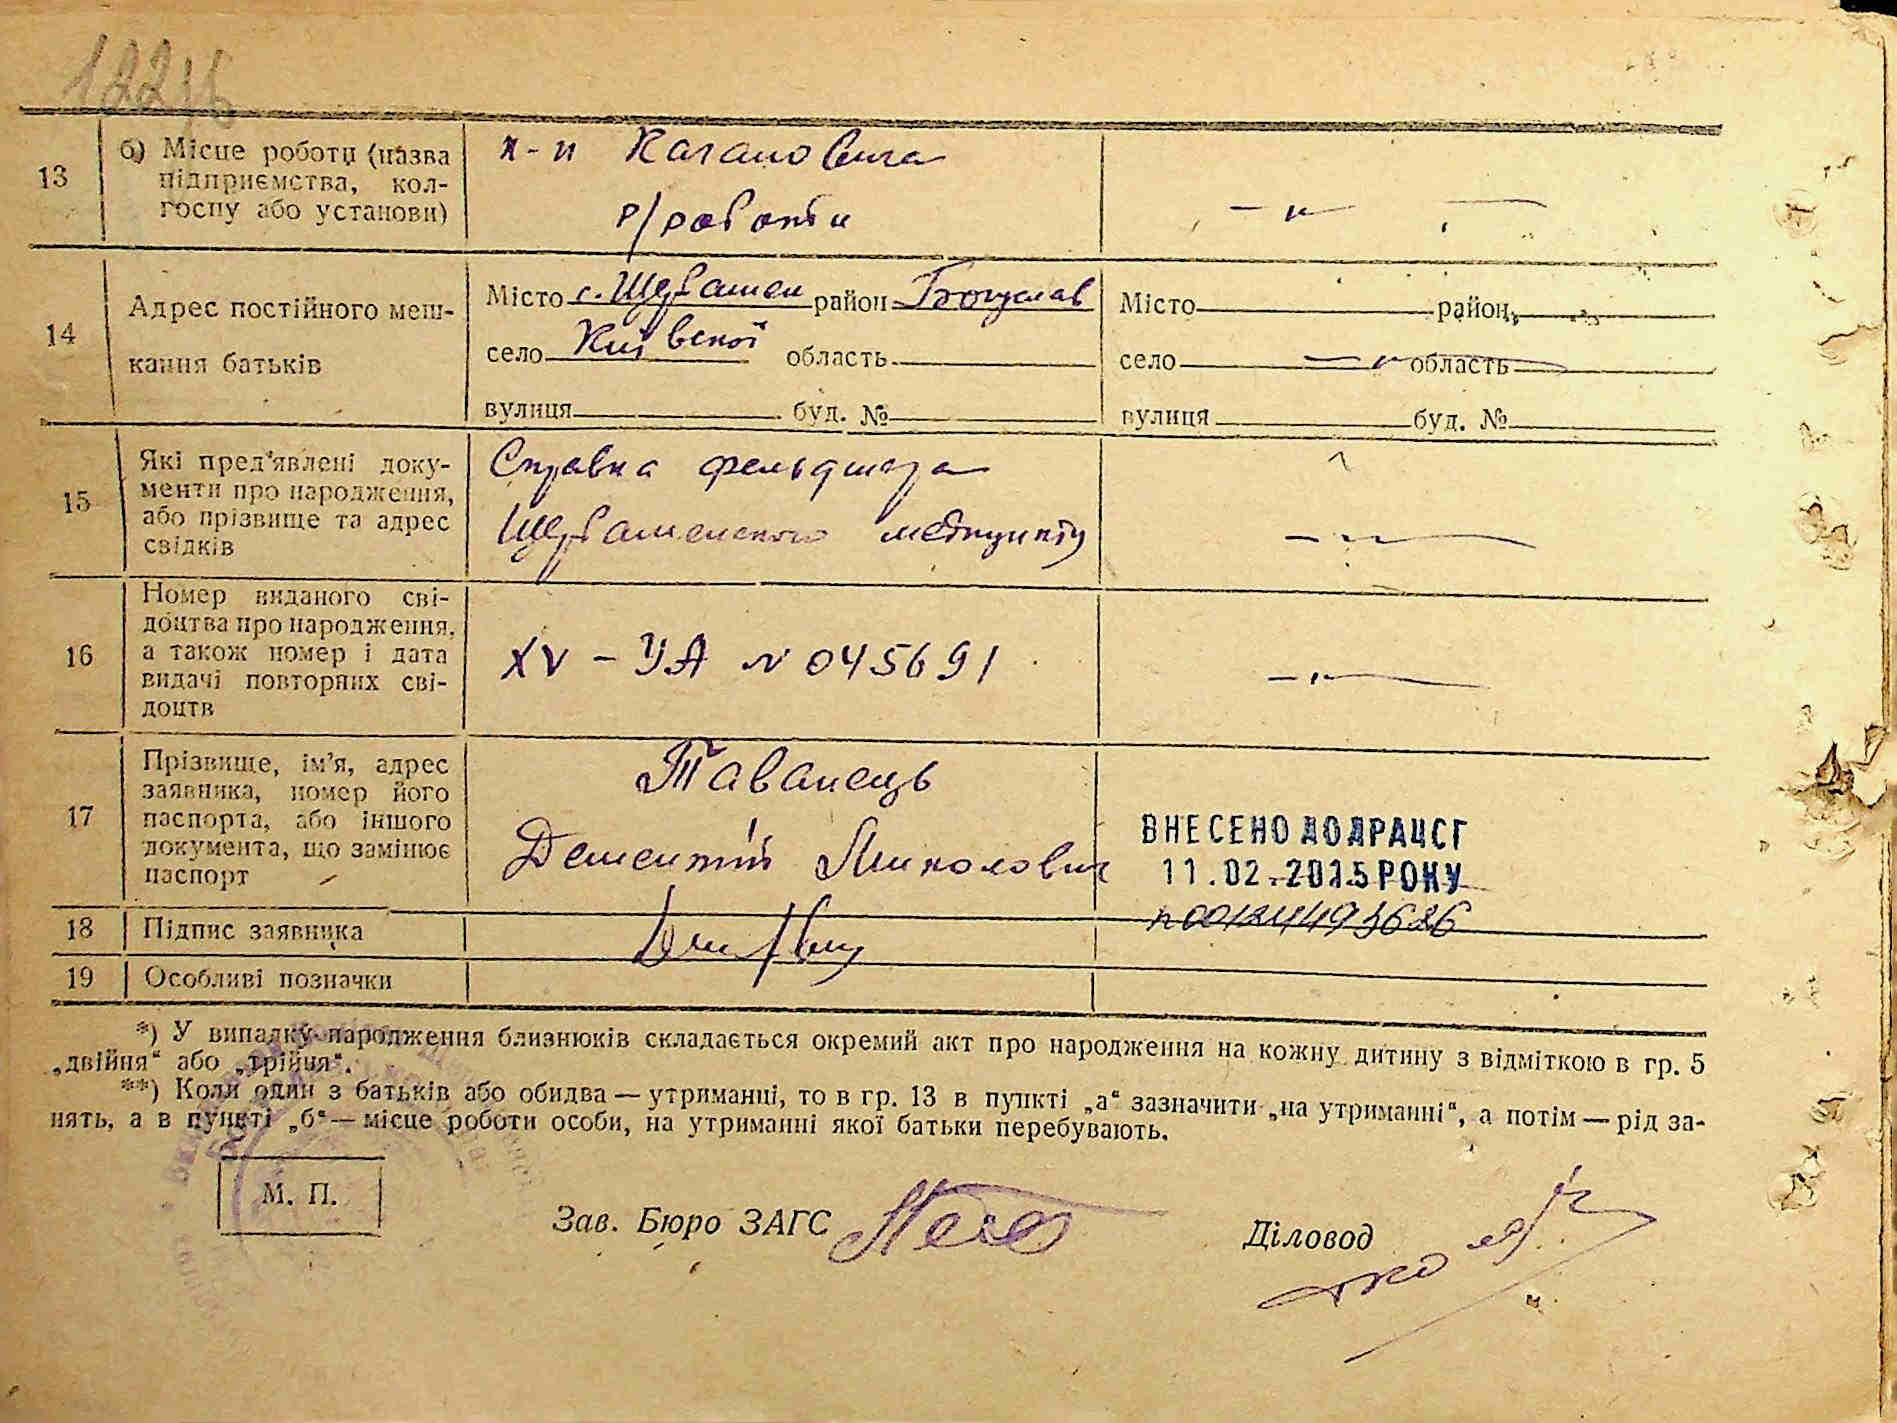 122
13
б) Місце роботи (назва підприємства, кол-госпу або установи)
к-п Кагановича
р/роботи
— „ —
14
Адрес постійного меш-
кання батьків
Місто с. Щербашен район Богуслав
село Київської область
вулиця буд. №
Місто район
село — „ — область
вулиця буд. №
15
Які пред'явлені доку-
менти про народження,
або прізвище та адрес
свідків
Справка фельдшера
Щербашенского медпункту
— „ —
16
Номер виданого сві-
доцтва про народження,
а також номер і дата
видачі повторних сві-
доцтв
XV – УА № 045691
— „ —
17
Прізвище, ім'я, адрес
заявника, номер його
паспорта, або іншого
документа, що замінює
паспорт
Таванець
Дементій Миколович
ВНЕСЕНО ДО ДРАЦСГ
11.02.2015 РОКУ
18
Підпис заявника
n00124493626
19
Особливі позначки
*) У випадку народження близнюків складається окремий акт про народження на кожну дитину з відміткою в гр. 5
„двійня“ або „трійня“.
**) Коли один з батьків або обидва — утриманці, то в гр. 13 в пункті „а“ зазначити „на утриманні“, а потім — рід за-
нять, а в пункті „б“ — місце роботи особи, на утриманні якої батьки перебувають.
М. П.
Зав. Бюро ЗАГС
Діловод